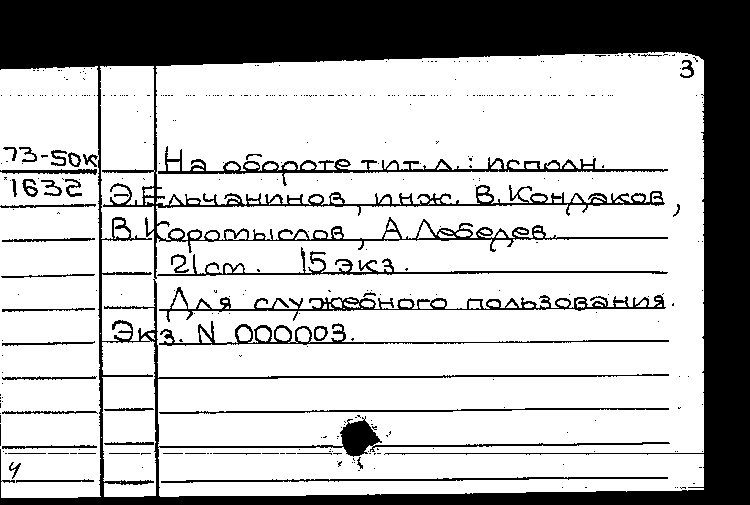 3
73-50к На обороте тит. л.: исполн.
1632 Э.Ельчанинов, инж. В.Кондаков,
В.Коромыслов, А.Лебедев.
21 ст. 15 экз.
Для служебного пользования.
Экз. N 000003.